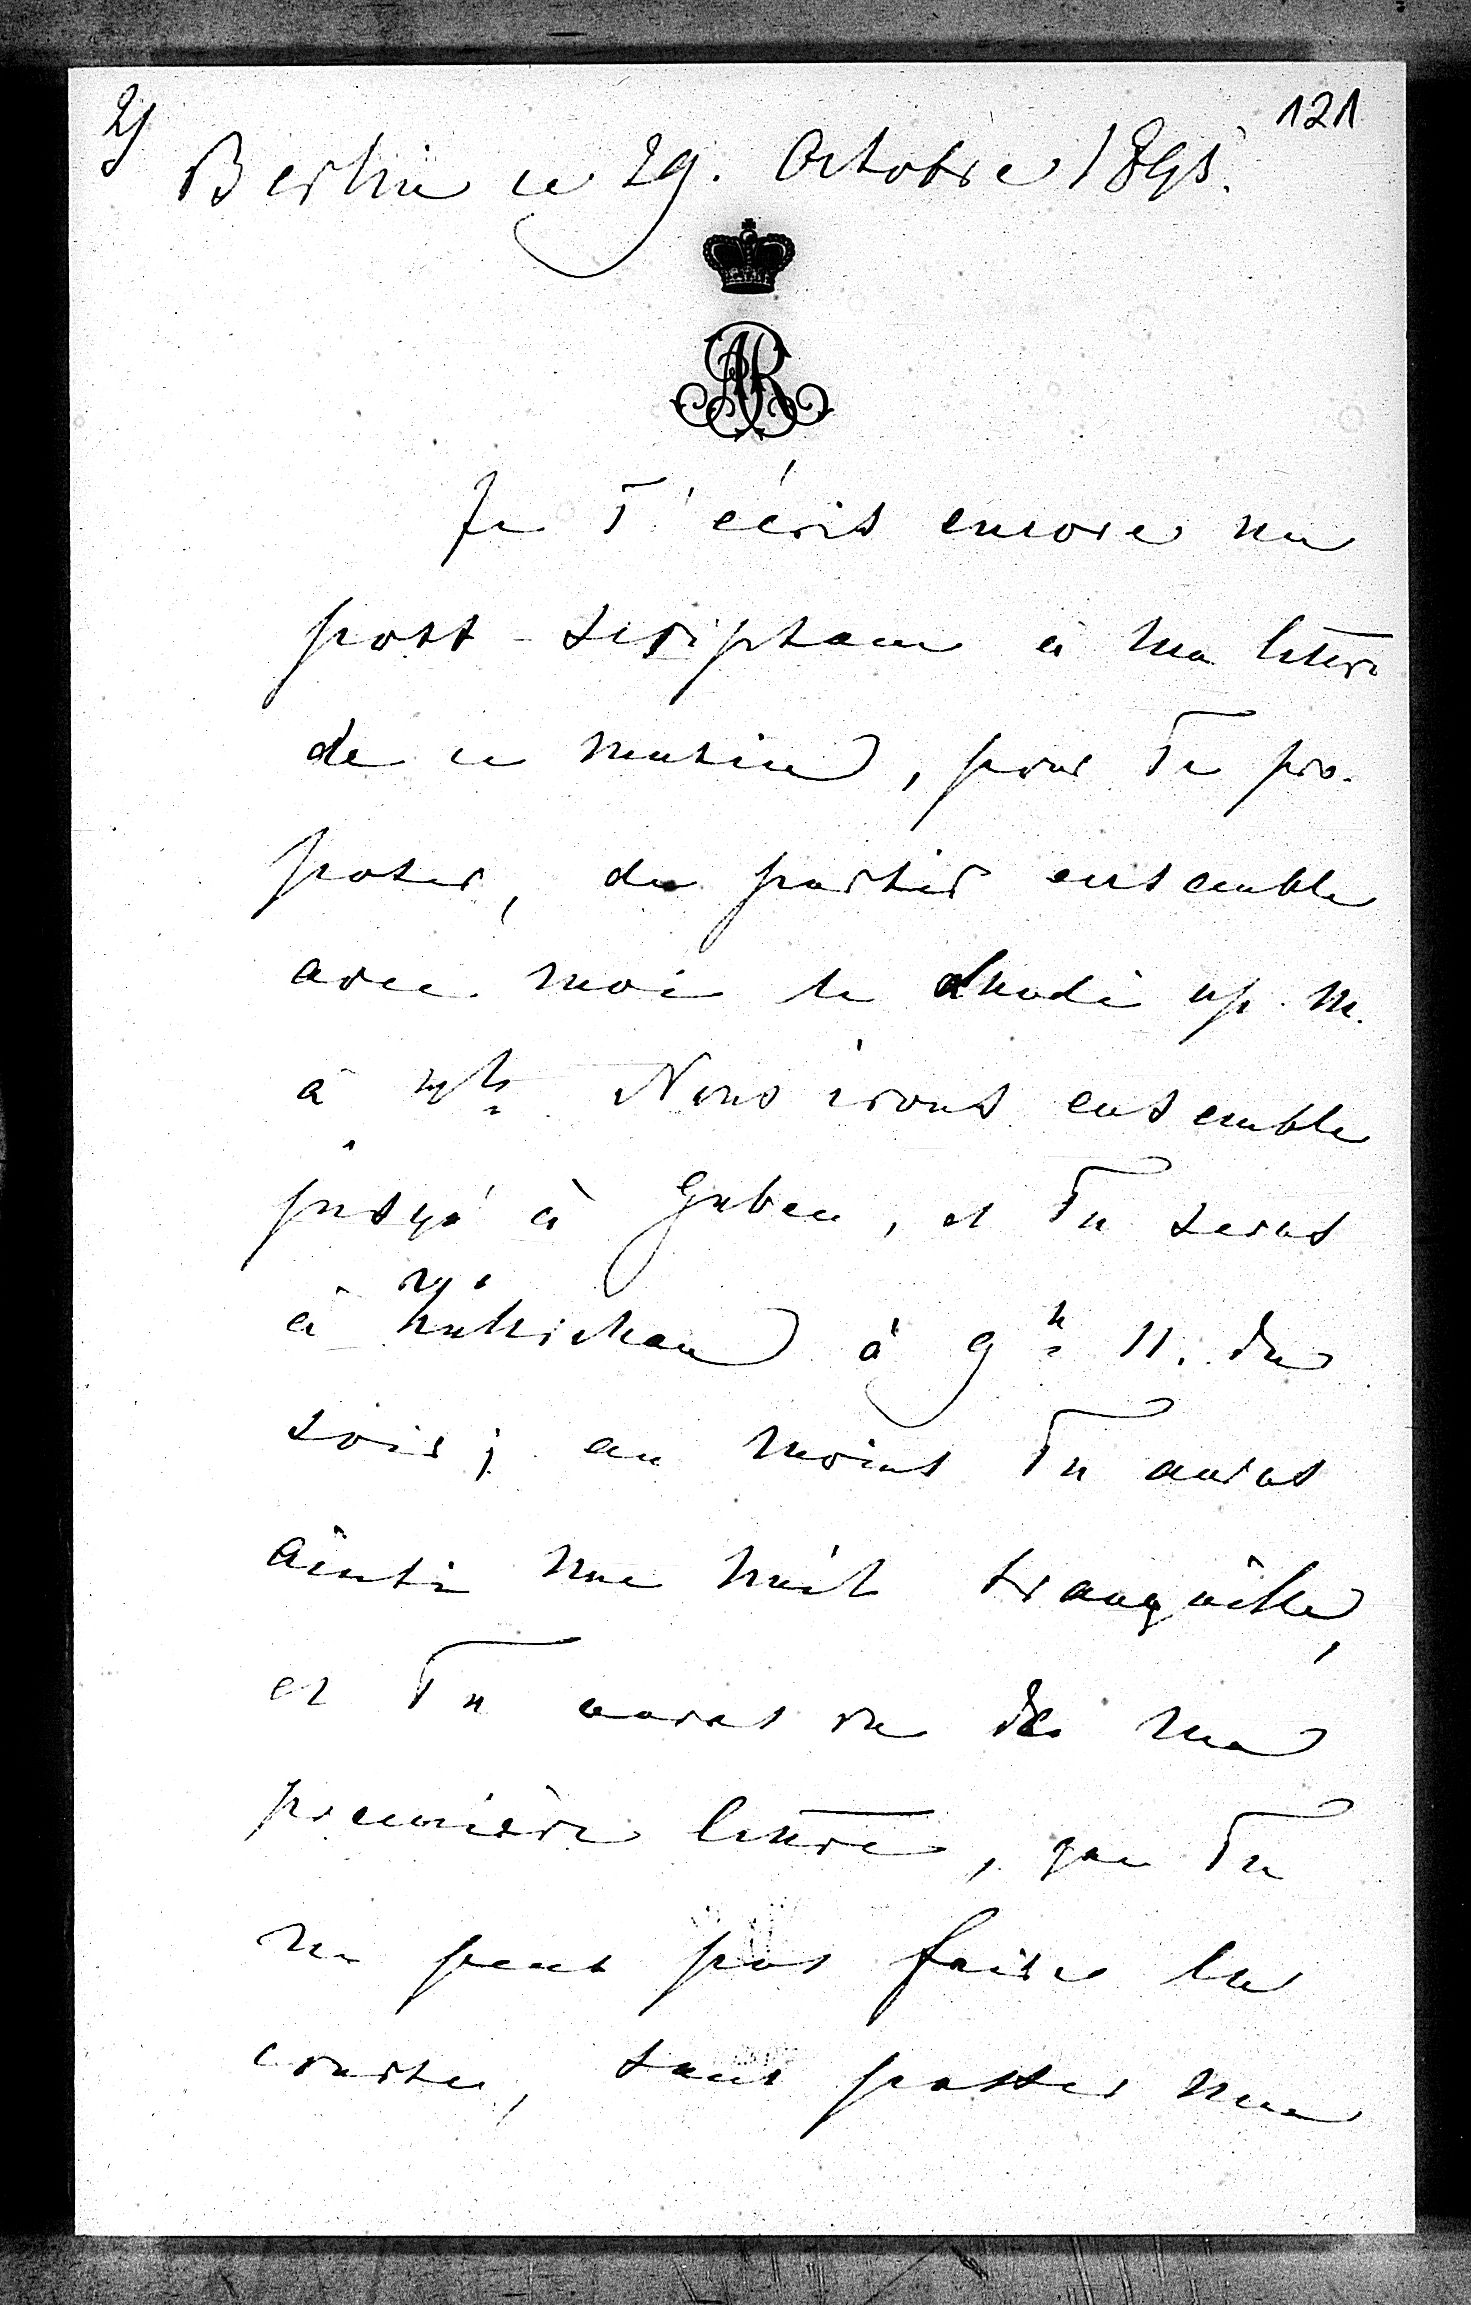 2)
121
Berlin ce 29. Octobre 1895.
AR
Je T'écris encore un
post-scriptum à ma lettre
de ce matin, pour Te pro-
poser, de partir ensemble
avec moi le
à Nous irons ensemble
jusqu' à Guben, et Tu seras
à à 9 h 11. du
soir; au moins Tu auras
ainsi une nuit tranquille,
et Tu auras vu de ma
première lettre, que Tu
ne peux pas faire la
course, sans passer une